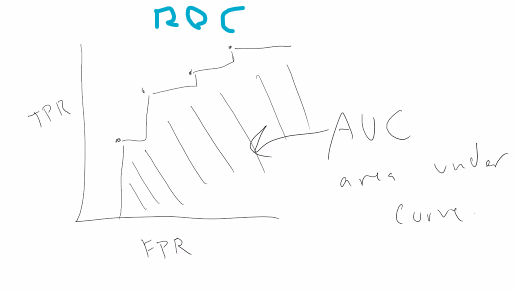 ROC
TPR
AUC
area under
curve.
FPR